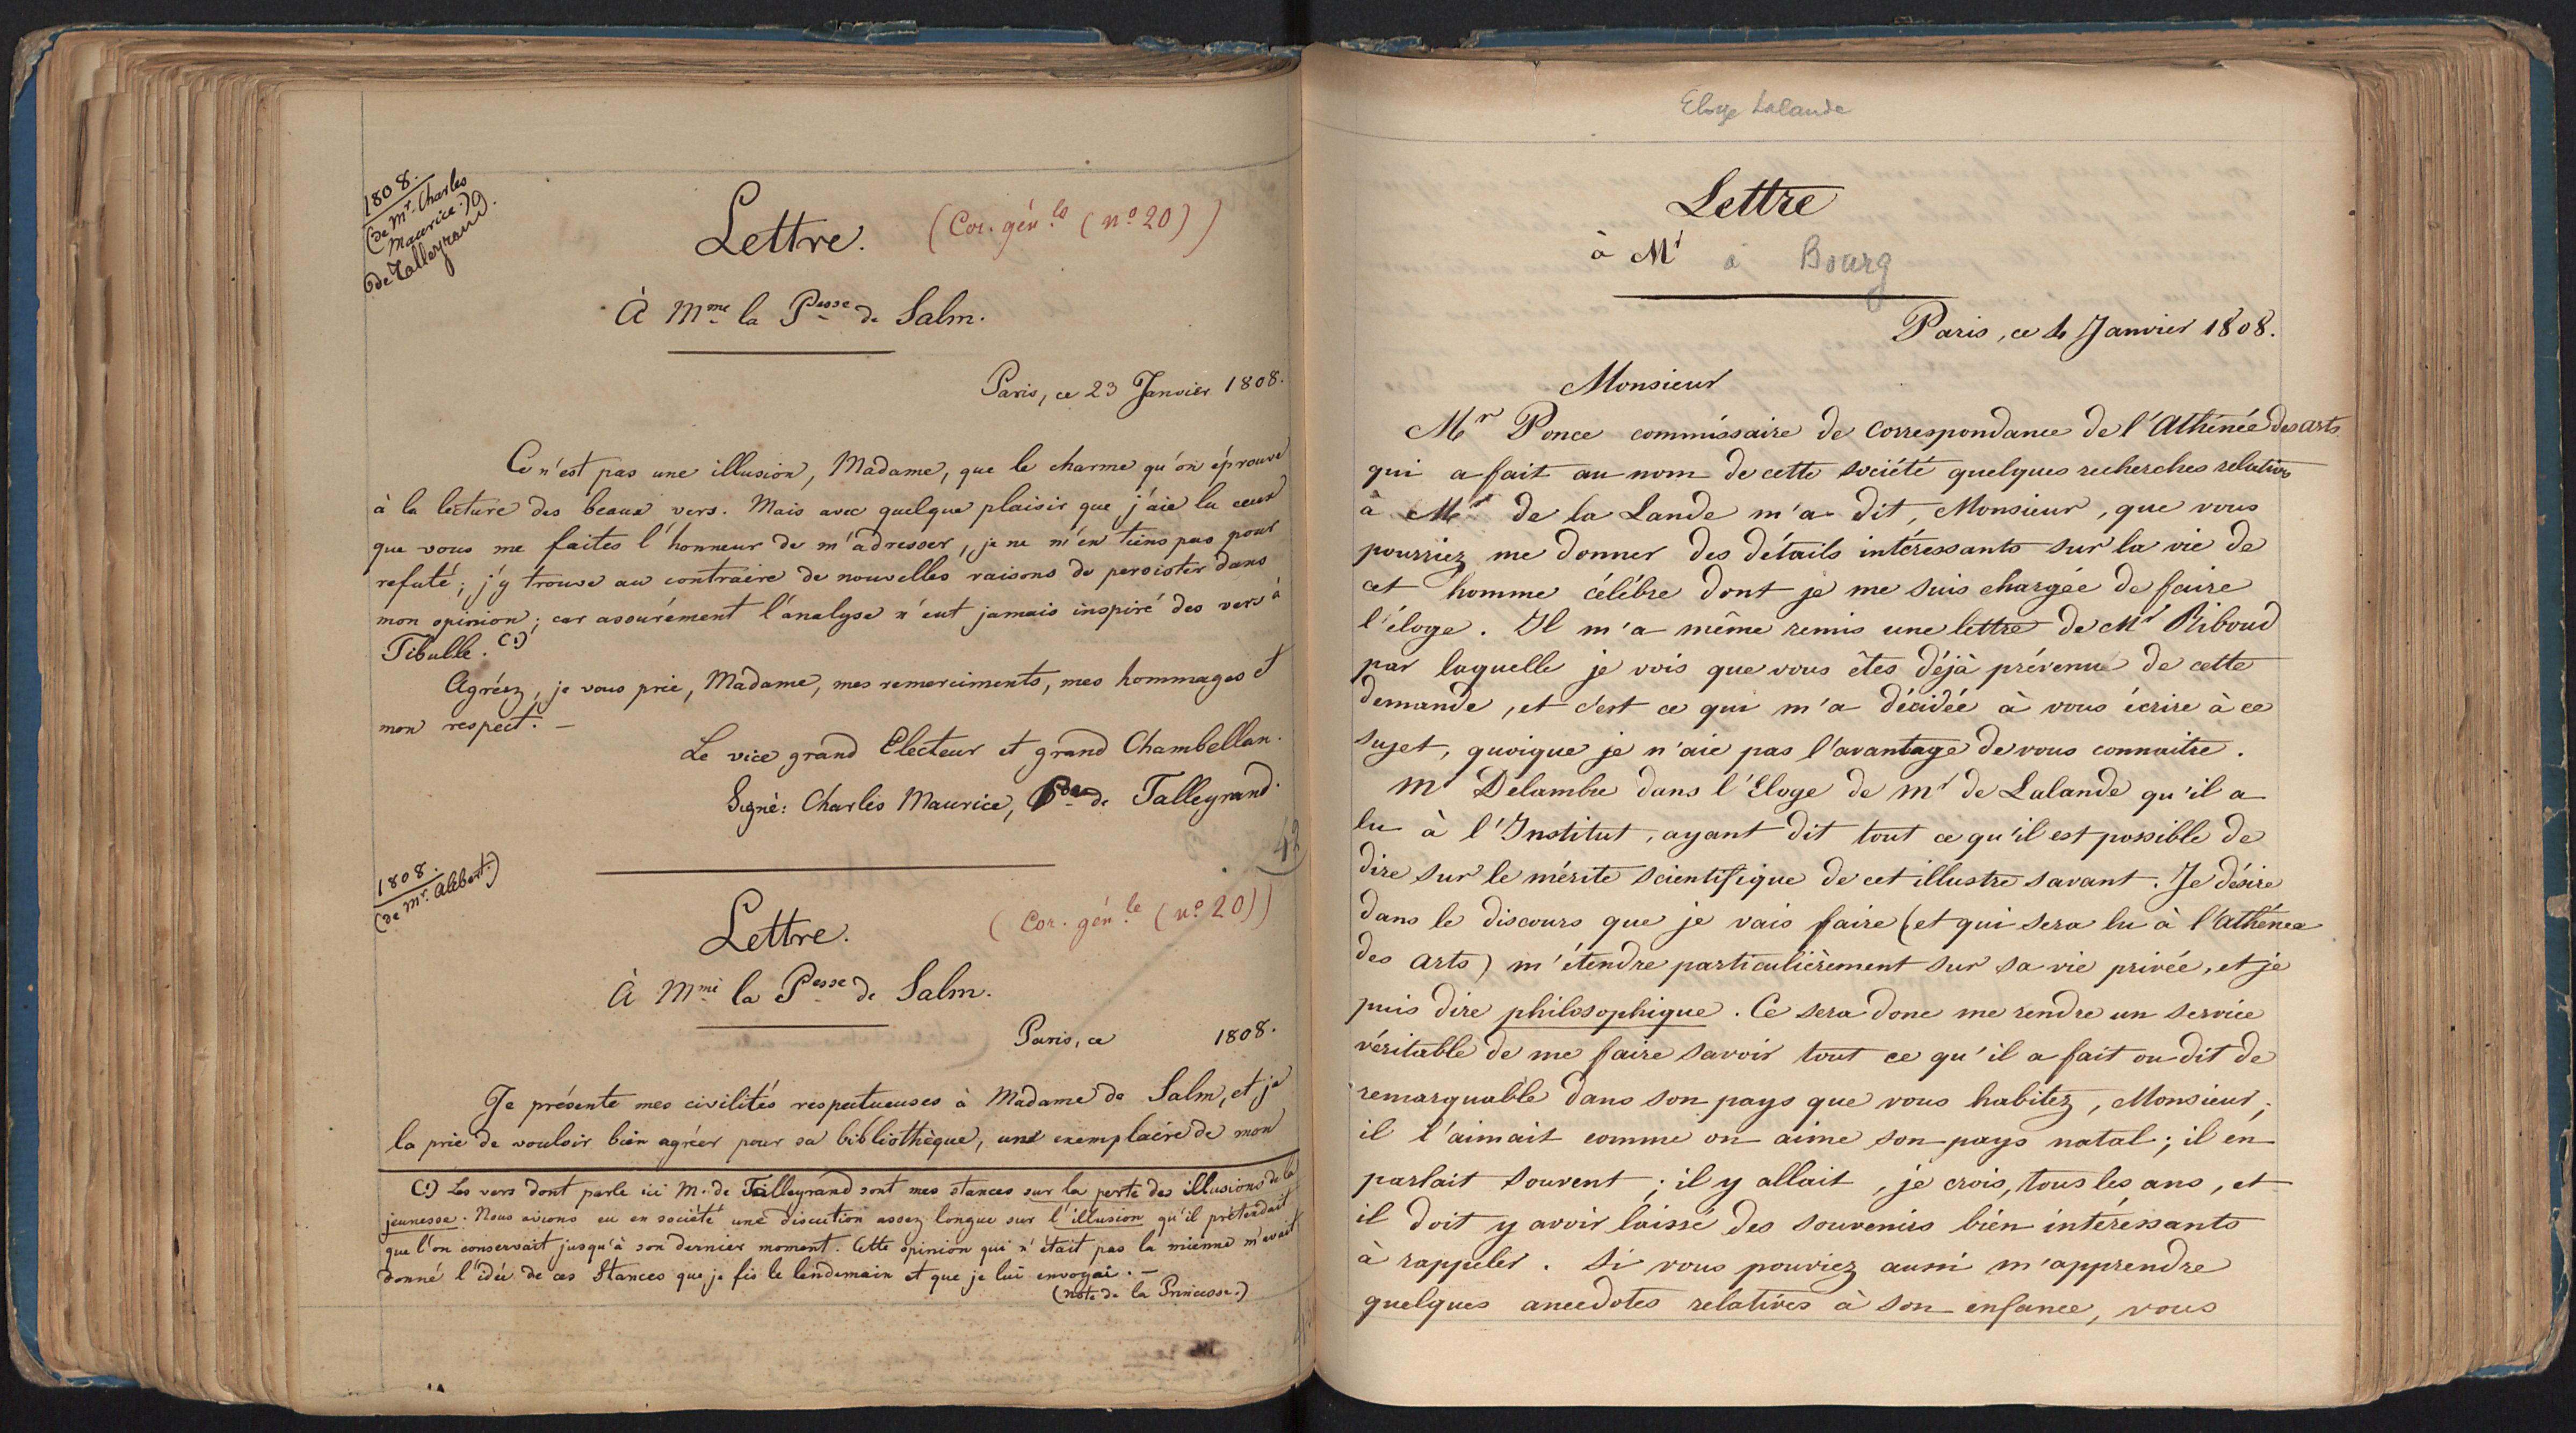 1808.
(de Mr. Charles
Maurice.)
de Talleyrand.
Lettre. (Cor. génle (nº 20))
À Mme la Pesse de Salm.
Paris, ce 23 Janvier 1808.
Ce n'est pas une illusion, Madame, que le charme qu'on éprouve
à la lecture des beaux vers. Mais avec quelque plaisir que j'aie lu ceux
que vous me faites l'honneur de m'adresser, je ne m'en tiens pas pour
refuté; j'y trouve au contraire de nouvelles raisons de persister dans
mon opinion; car assurément l'analyse n'eut jamais inspiré des vers à
Tibulle. (1)
Agréez, je vous prie, Madame, mes remerciments, mes hommages et
mon respect. —
Le vice grand Electeur et grand Chambellan.
Signé: Charles Maurice, Pce de Talleyrand.
42
1808.
(de Mr. Alibert.)
Lettre. (Cor. génle (nº 20))
À Mme la Pesse de Salm.
Paris, ce 1808.
Je présente mes civilités respectueuses à Madame de Salm, et je
la prie de vouloir bien agréer pour sa bibliothèque, un exemplaire de mon
(1) Les vers dont parle ici M. de Talleyrand sont mes stances sur la perte des illusions de la
jeunesse. Nous avions eu en société une discution assez longue sur l'illusion qu'il prétendait
que l'on conservait jusqu'à son dernier moment. Cette opinion qui n'était pas la mienne m'avait
donné l'idée de ces Stances que je fis le lendemain et que je lui envoyai. —
(note de la Princesse.)
Eloge Lalande
Lettre
à Mr à Bourg
Paris, ce 4 Janvier 1808.
Monsieur
Mr Ponce commissaire de correspondance de l'Athénée des arts
qui a fait au nom de cette société quelques recherches relatives
à Mr de la Lande m'a dit, Monsieur, que vous
pourriez me donner des détails intéressants sur la vie de
cet homme célébre dont je me suis chargée de faire
l'éloge. Il m'a même remis une lettre de Mr Riboud
par laquelle je vois que vous êtes déjà prévenu de cette
demande, et c'est ce qui m'a décidée à vous écrire à ce
sujet, quoique je n'aie pas l'avantage de vous connaitre.
Mr Delambre dans l'Eloge de Mr de Lalande qu'il a
lu à l'Institut, ayant dit tout ce qu'il est possible de
dire sur le mérite scientifique de cet illustre savant. Je désire
dans le discours que je vais faire (et qui sera lu à l'athénée
des arts) m'étendre particulièrement sur sa vie privée, et je
puis dire philosophique. Ce sera donc me rendre un service
véritable de me faire savoir tout ce qu'il a fait ou dit de
remarquable dans son pays que vous habitez, Monsieur;
il l'aimait comme on aime son pays natal; il en
parlait souvent; il y allait, je crois, tous les ans, et
il doit y avoir laissé des souvenirs bien intéressants
à rappeler. Si vous pouviez aussi m'apprendre
quelques anecdotes relatives à son enfance, vous